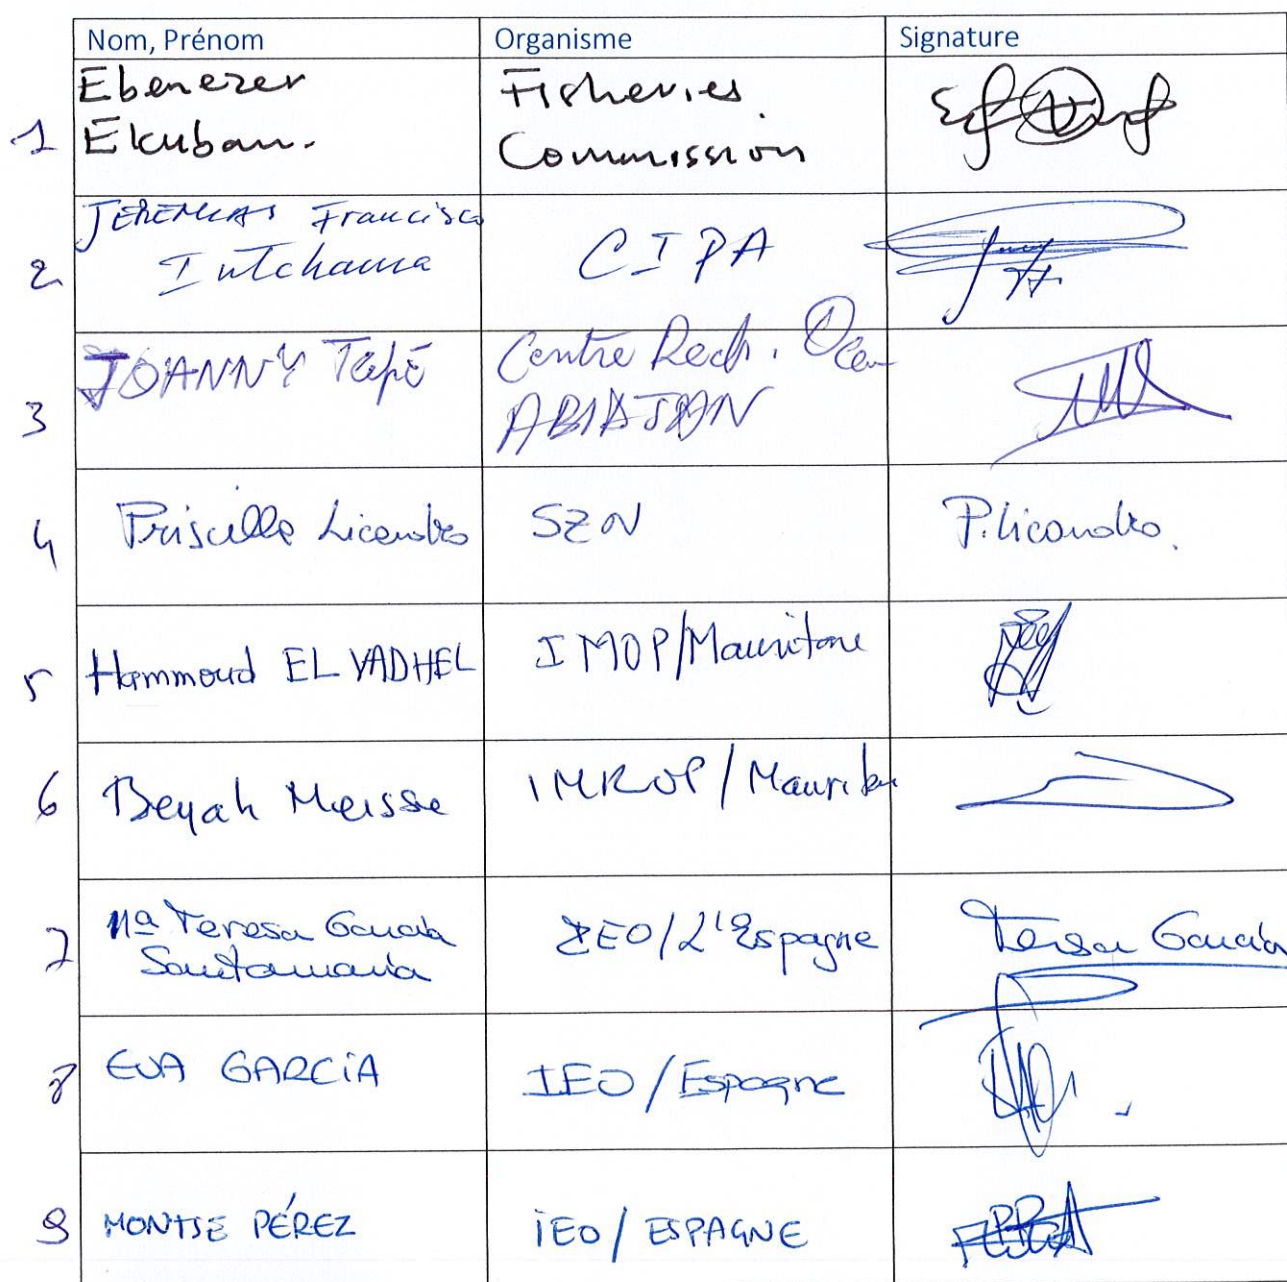 Nom, Prénom Organisme Signature
Ebenezer Fisheries
1 Ekuban. Commission
JEREMIAS Francisco
2 Intchama CIPA
JOANNY Tapé Centre Rech. Océan
3 ABIDJAN
4 Priscilla Licandro SZN P. Licandro.
5 Hammoud EL VADHEL IMOP/Mauritanie
6 Beyah Meisse IMROP/Mauritanie
7 Mª Teresa García IEO/L'Espagne Teresa García
Santamaría
8 EVA GARCÍA IEO/Espagne
9 MONTSE PÉREZ IEO/ESPAGNE